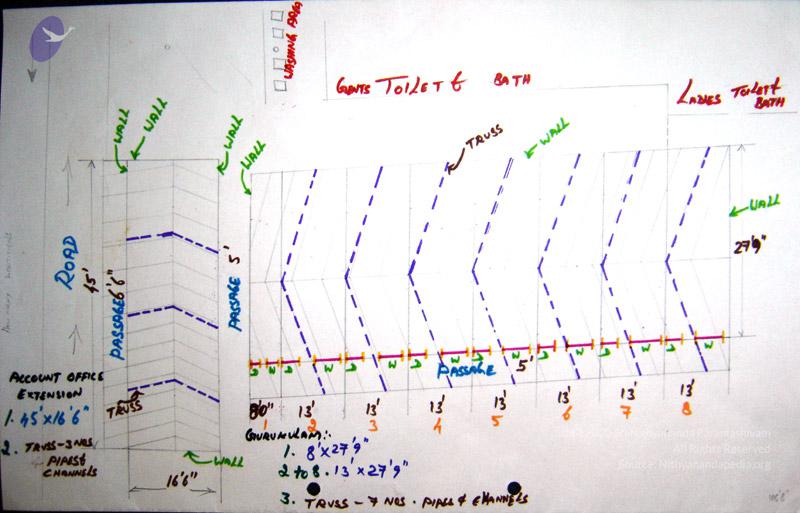 WASHING AREA
GENTS TOILET & BATH
LADIES TOILET &
BATH
WALL
WALL
WALL
WALL
TRUSS
WALL
WALL
ROAD
45'
PASSAGE 6'6"
PASSAGE 5'
27'9"
D W D W D W D W D W D W D W D W
PASSAGE 5'
TRUSS
8'0" 13' 13' 13' 13' 13' 13' 13'
1 2 3 4 5 6 7 8
ACCOUNT OFFICE
EXTENSION
1. 45'X16'6"
2. TRUSS-3NOS
PIPES &
CHANNELS
WALL
16'6"
GURUKULAM:-
1. 8'X27'9"
2 TO 8. 13'X27'9"
3. TRUSS-7 NOS. PIPES & CHANNELS
Rights Reserved
Source: Nithyanandapedia.org